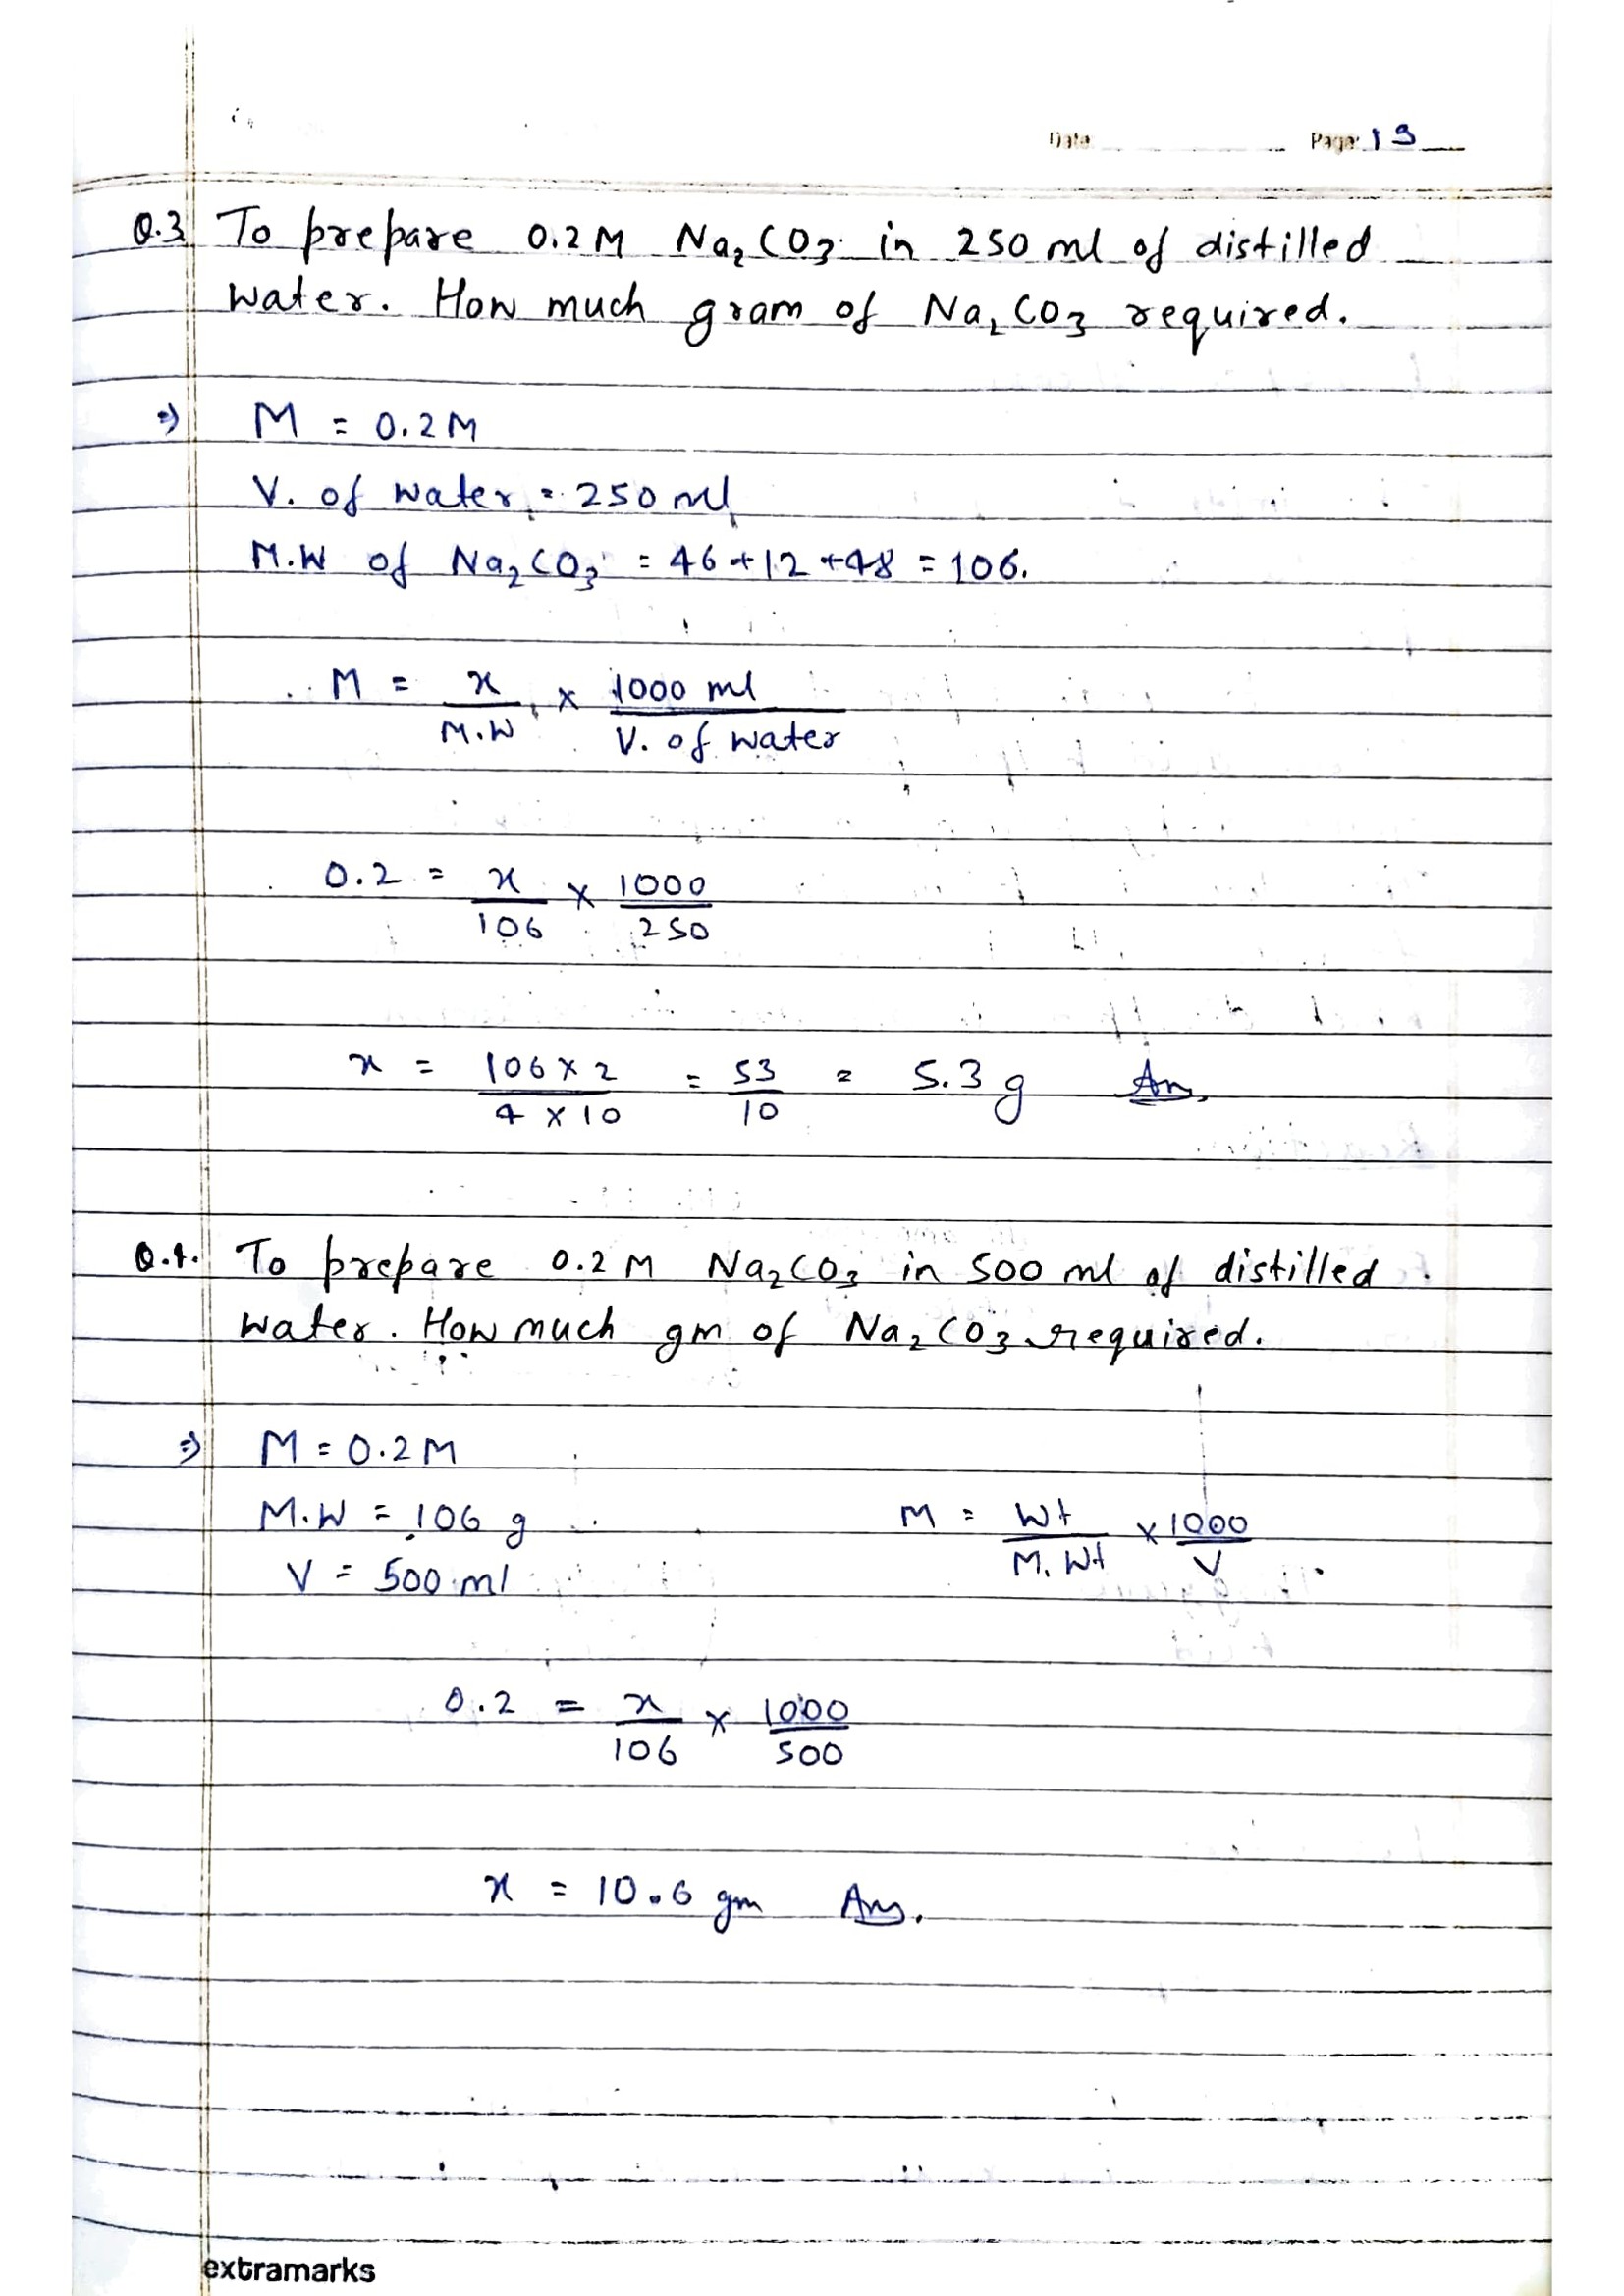 Date Page: 13
Q.3 To prepare 0.2M Na₂CO₃ in 250 ml of distilled
water. How much gram of Na₂CO₃ required.
⇒ M = 0.2M
V. of water = 250 ml
M.W of Na₂CO₃ = 46+12+48 = 106.
M = x/M.W × 1000 ml/V. of water
0.2 = x/106 × 1000/250
x = 106×2/4×10 = 53/10 = 5.3g Ans.
Q.4. To prepare 0.2M Na₂CO₃ in 500 ml of distilled
water. How much gm of Na₂CO₃ required.
⇒ M = 0.2M
M.W = 106 g M = Wt/M.Wt × 1000/V
V = 500 ml
0.2 = x/106 × 1000/500
x = 10.6 gm Ans.
extramarks